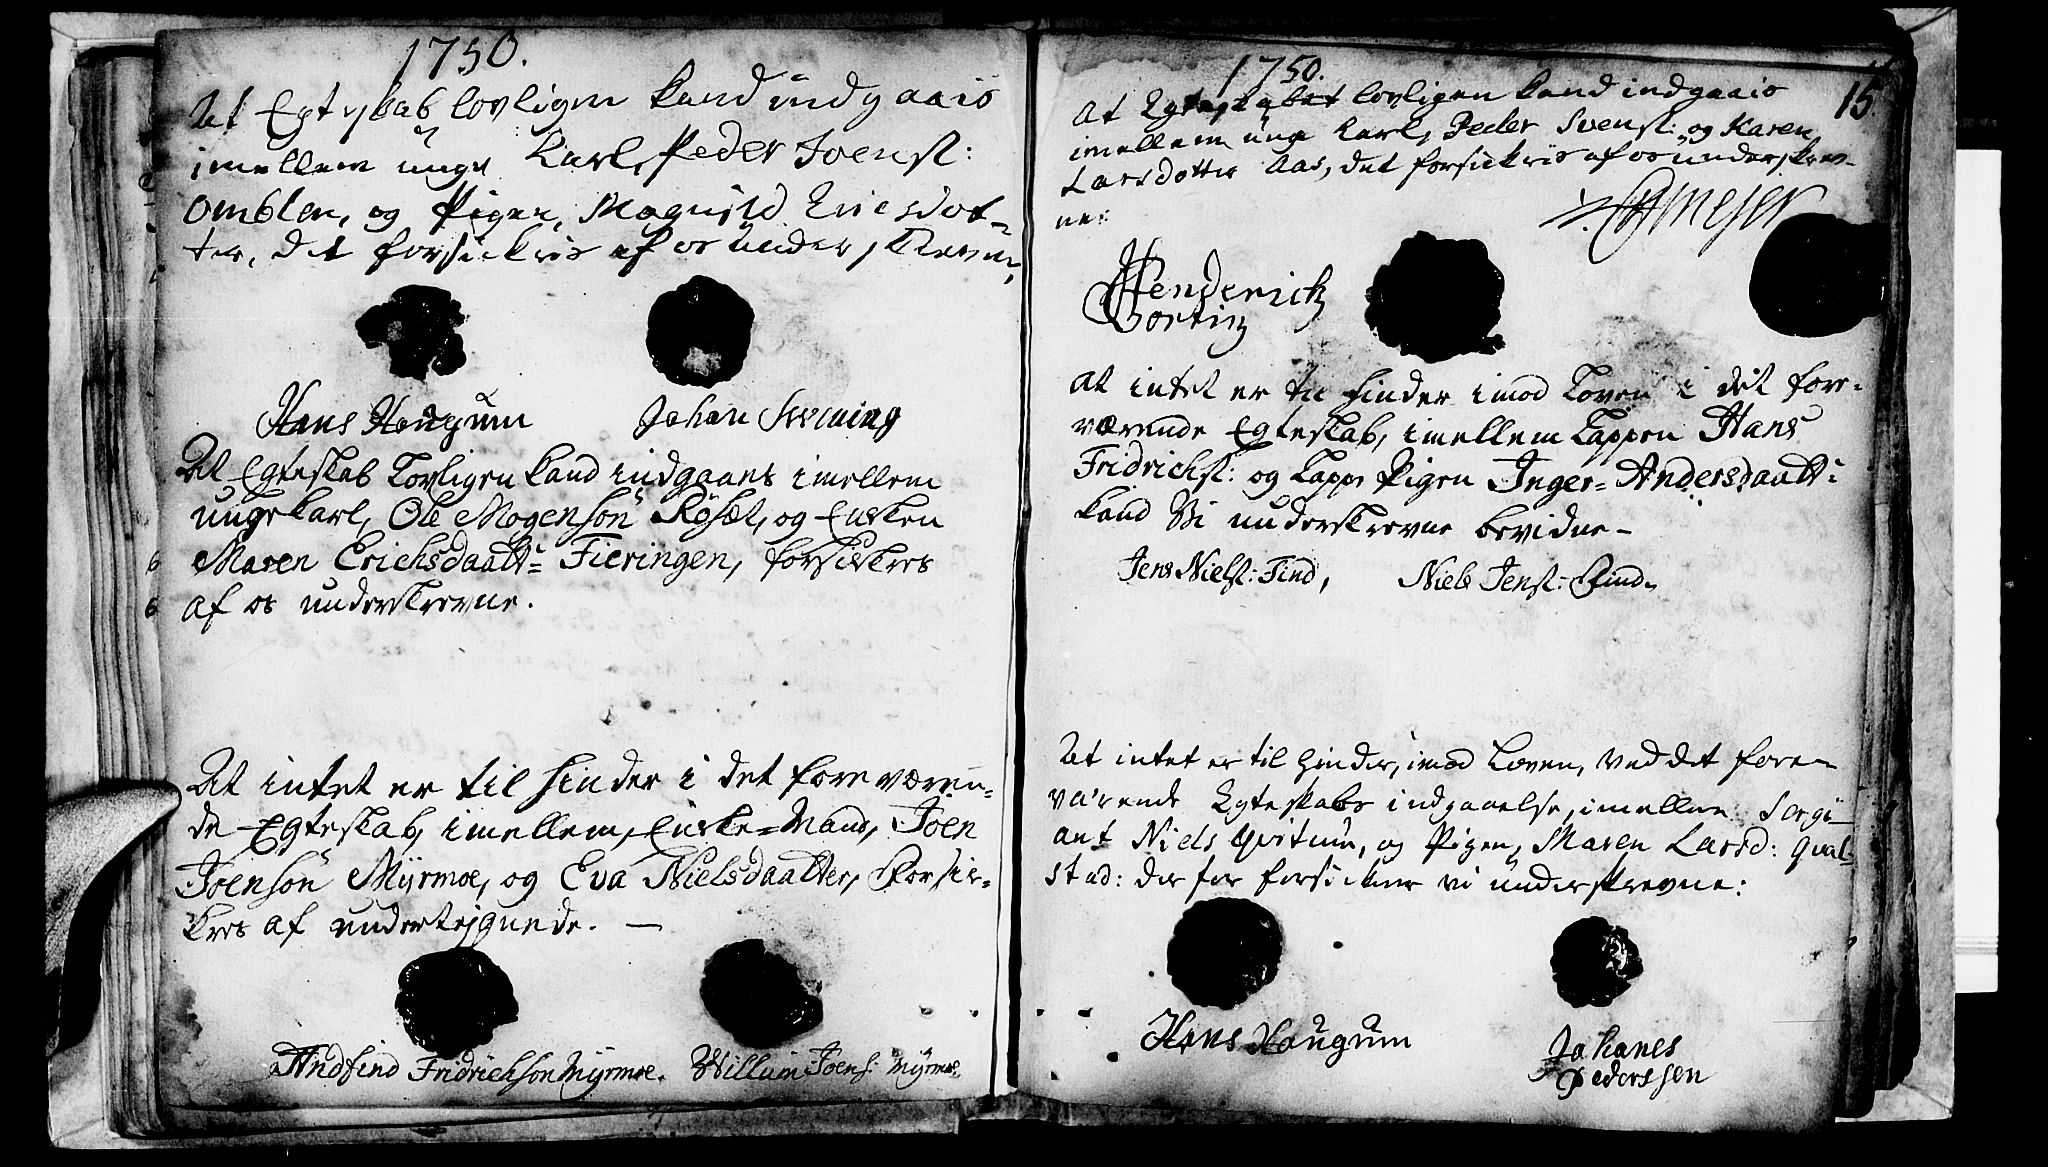 1750.
At Egteskab lovligen kand indgaais
imellem unge Karl, Peder Joensl:
Omblen, og Pigen, Magnild Ericsdot=
ter, det forsickris af os underskrevne,
Hans Haugum
Johan
At Egteskab Lovligen kand indgaaes imellem
ungekarl, Ole Mogensön Röset, og Encken
Maren Erichsdaatt= Fieringen, forsickres
af os underskrevne.
At intet er til hinder i det foreværen=
de Egteskab, imellem, Encke=Mand, Joen
Joensön Myrmoe, og Eva Nielsdaatter, forsic=
kres af undertejgnede. —
Andfind Fridrichson Myrmoe.
Willum Joens: Myrmoe.
1750.
15.
At Egteskabet lovligen kand indgaais
imellem unge Karl, Peder Svensl: og Karen
Larsdotter Aas, det forsickris af os underskrev-
ne:
Henderick
At intet er til Hinder imod Loven i det fore=
værende Egteskab, imellem Lappen Hans
Fridrichsl: og Lappe Pigen Inger= Andersdaatt=
kand Vi underskrevne bevidne-
Jens Nielsl: Find,
Niels Jensl: Find.
At intet er til Hinder, imod Loven, ved det fore=
værende Egteskabs indgaaelse, imellem Sergi=
ant Niels Qvitnin, og Pigen, Maren Larsd: Qval=
stad: der for forsickrer vi underskrevne:
Hans Haugum
Johanes
Pederssen